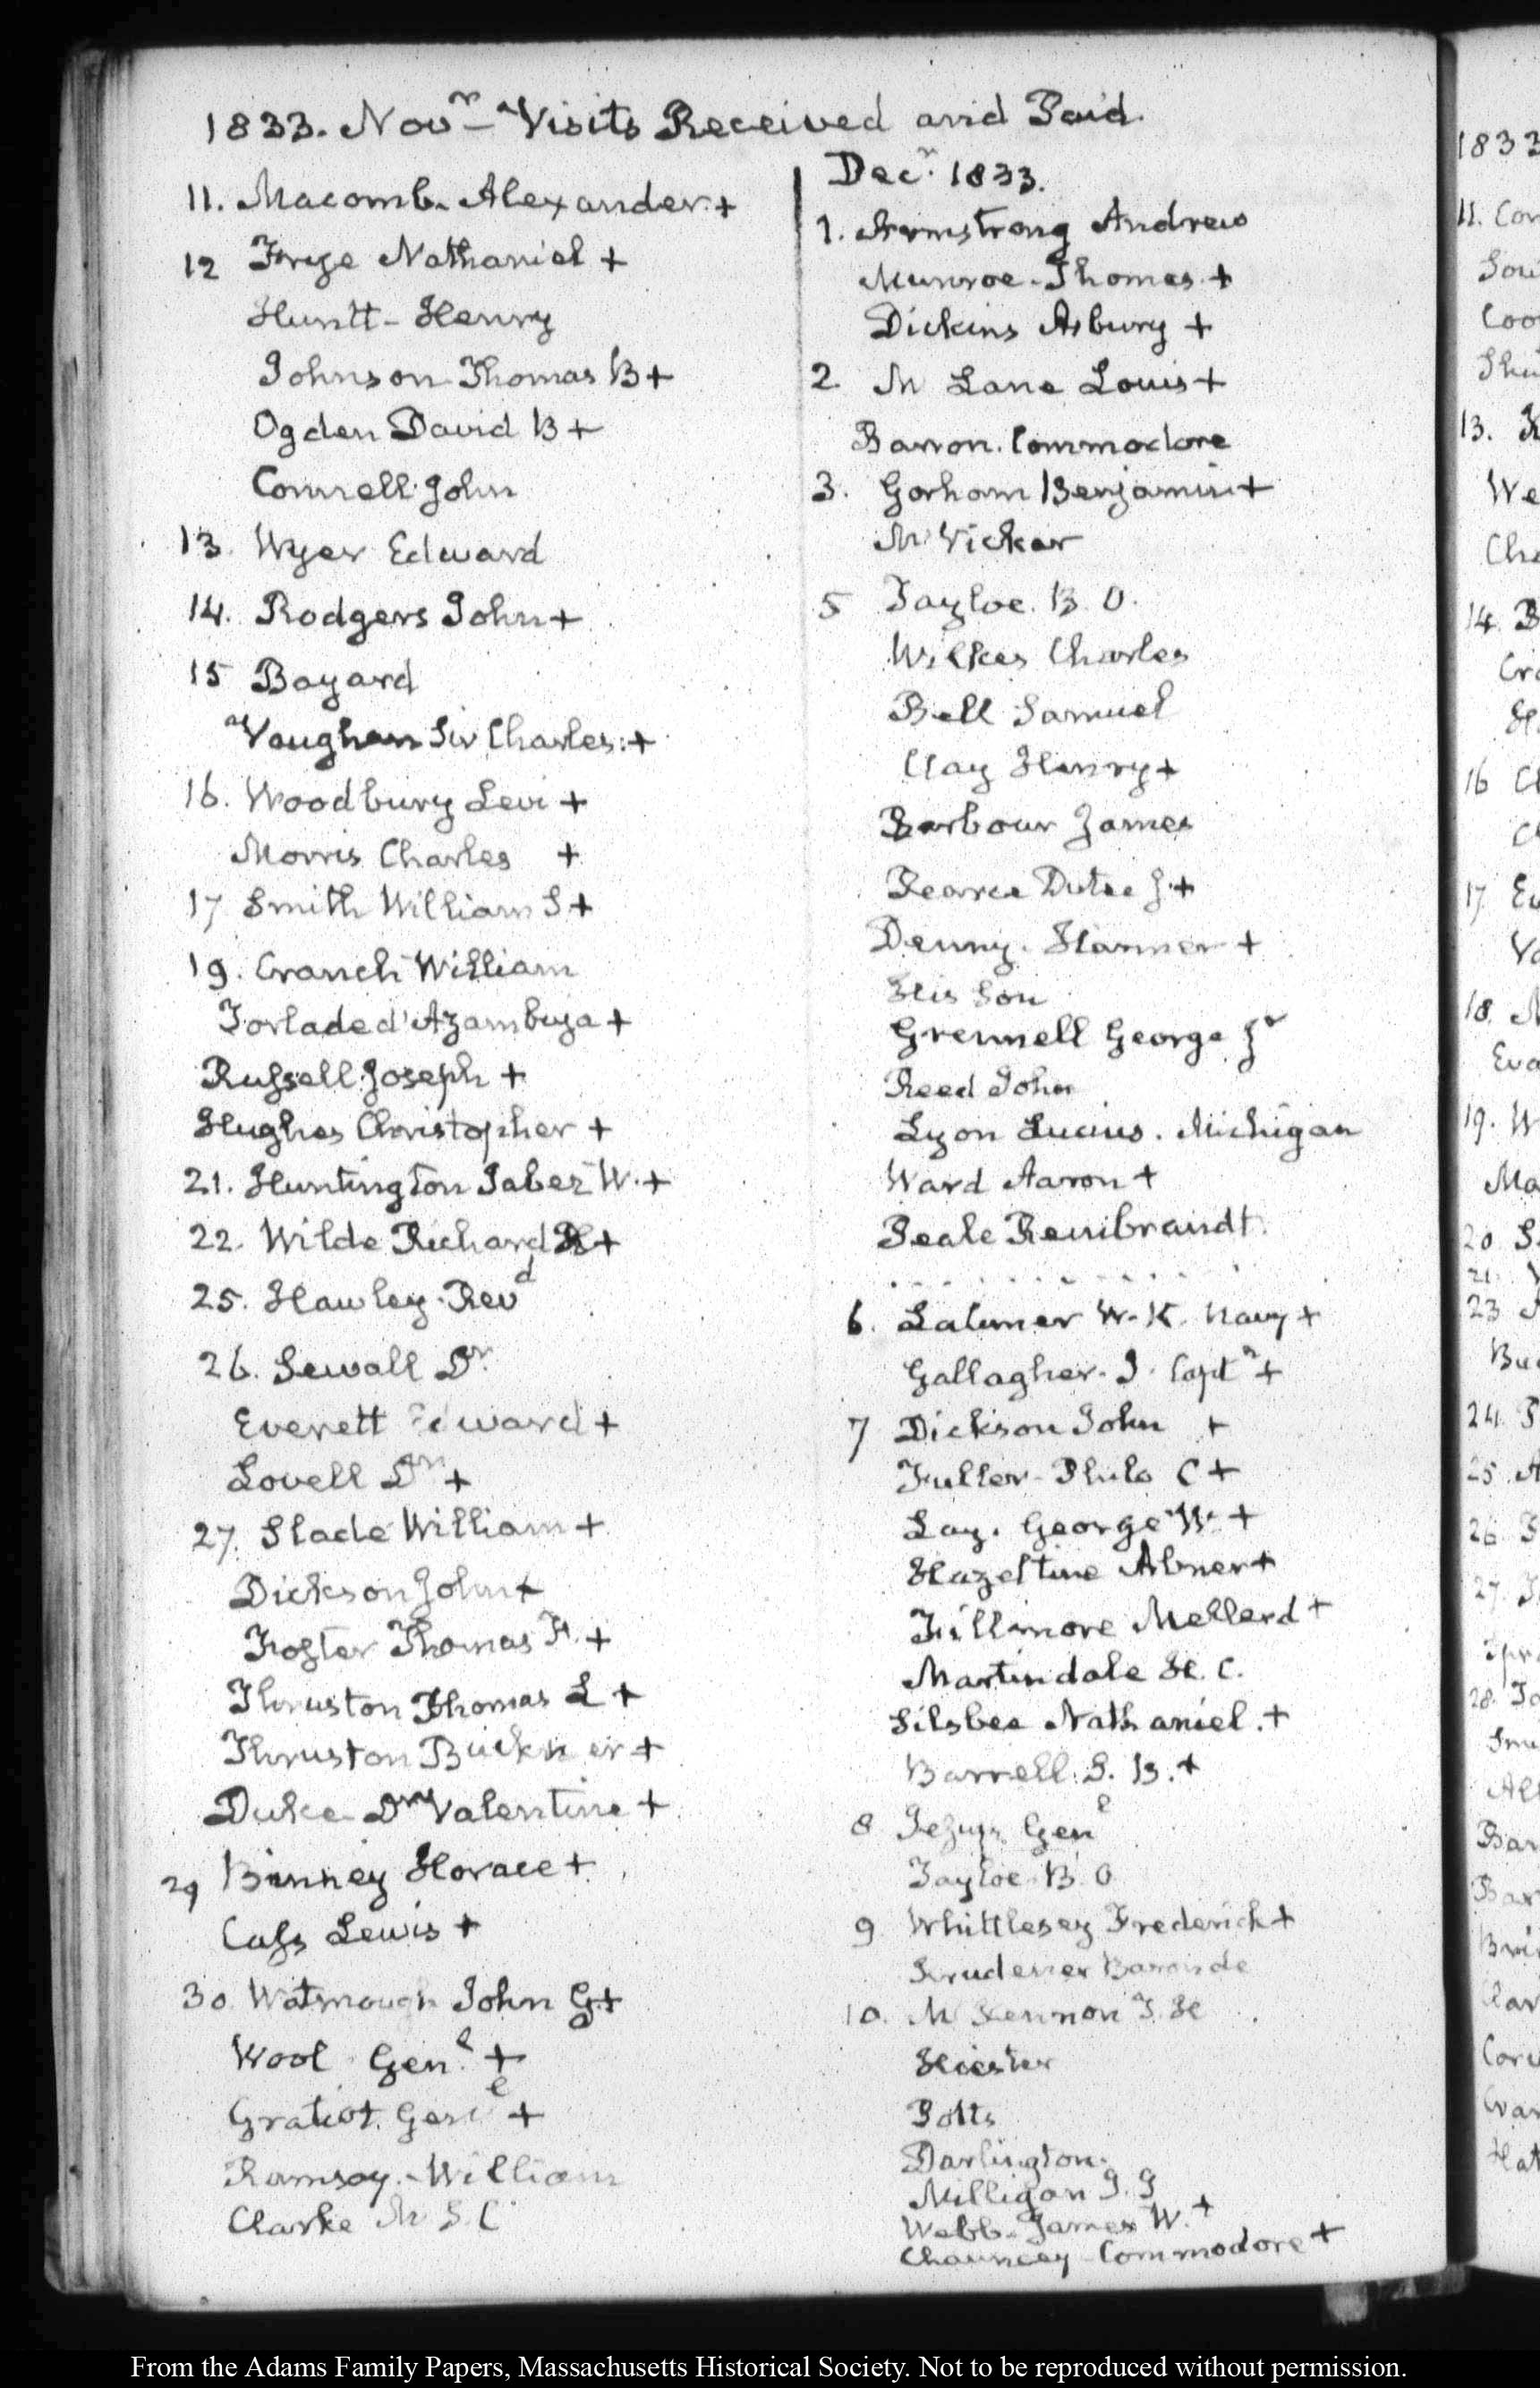 1833. Novr — Visits Received and Paid.
11. Macomb. Alexander +
12 Frye Nathaniel +
Huntt - Henry
Johnson Thomas B +
Ogden David B +
Connell John
13. Wyer Edward
14. Rodgers John +
15 Bayard
Vaughan Sir Charles. +
16. Woodbury Levi +
Morris Charles +
17 Smith William S +
19. Cranch William
Torlade d'Azambuja +
Russell Joseph +
Hughes Christopher +
21. Huntington Jabez W. +
22. Wilde Richard H +
25. Hawley Revd
26. Sewall Dr
Everett Edward +
Lovell Dr +
27. Slade William +
Dickson John +
Foster Thomas F. +
Thruston Thomas L +
Thruston Buckner +
Duke Dr Valentine +
29 Binney Horace +
Cass Lewis +
30 Watmough John G +
Wool Genl +
Gratiot. Genl +
Ramsay. William
Clarke M S. C
Decr 1833.
1. Armstrong Andrew
Munroe. Thomas. +
Dickins Asbury +
2. Mc Lane Louis +
Barron. Commodore
3. Gorham Benjamin +
Mc Vickar
5 Tayloe. B. O.
Wilkes Charles
Bell Samuel
Clay Henry +
Barbour James
Pearce Dutee J. +
Denny. Harmer +
His Son
Grennell George Jr
Reed John
Lyon Lucius. Michigan
Ward Aaron +
Peale Rembrandt.
6. Latimer W. K. Navy +
Gallagher. J. Captn +
7 Dickson John +
Fuller Philo C +
Lay. George W. +
Hazeltine Abner +
Fillimore Mellerd +
Martindale H. C.
Silsbee Nathaniel. +
Barrell. S. B. +
8 Jesup Genl
Tayloe B. O
9 Whittlesey Frederick +
Krudener Baron de
10. Mc Kennon T. H
Hiester
Potts
Darlington.
Milligan J. J
Webb. James W. +
Chauncey Commodore +
1833
11. Cor
Sou
Coo
Shu
13.
We
Cha
14. B
Cra
16 Cl
17. Ev
18.
Eva
19. W
Ma
20 S.
21.
23
Bu
24.
25. A
26.
27.
28.
All
Bar
Bax
Bri
Clar
Cor
Hat
From the Adams Family Papers, Massachusetts Historical Society. Not to be reproduced without permission.